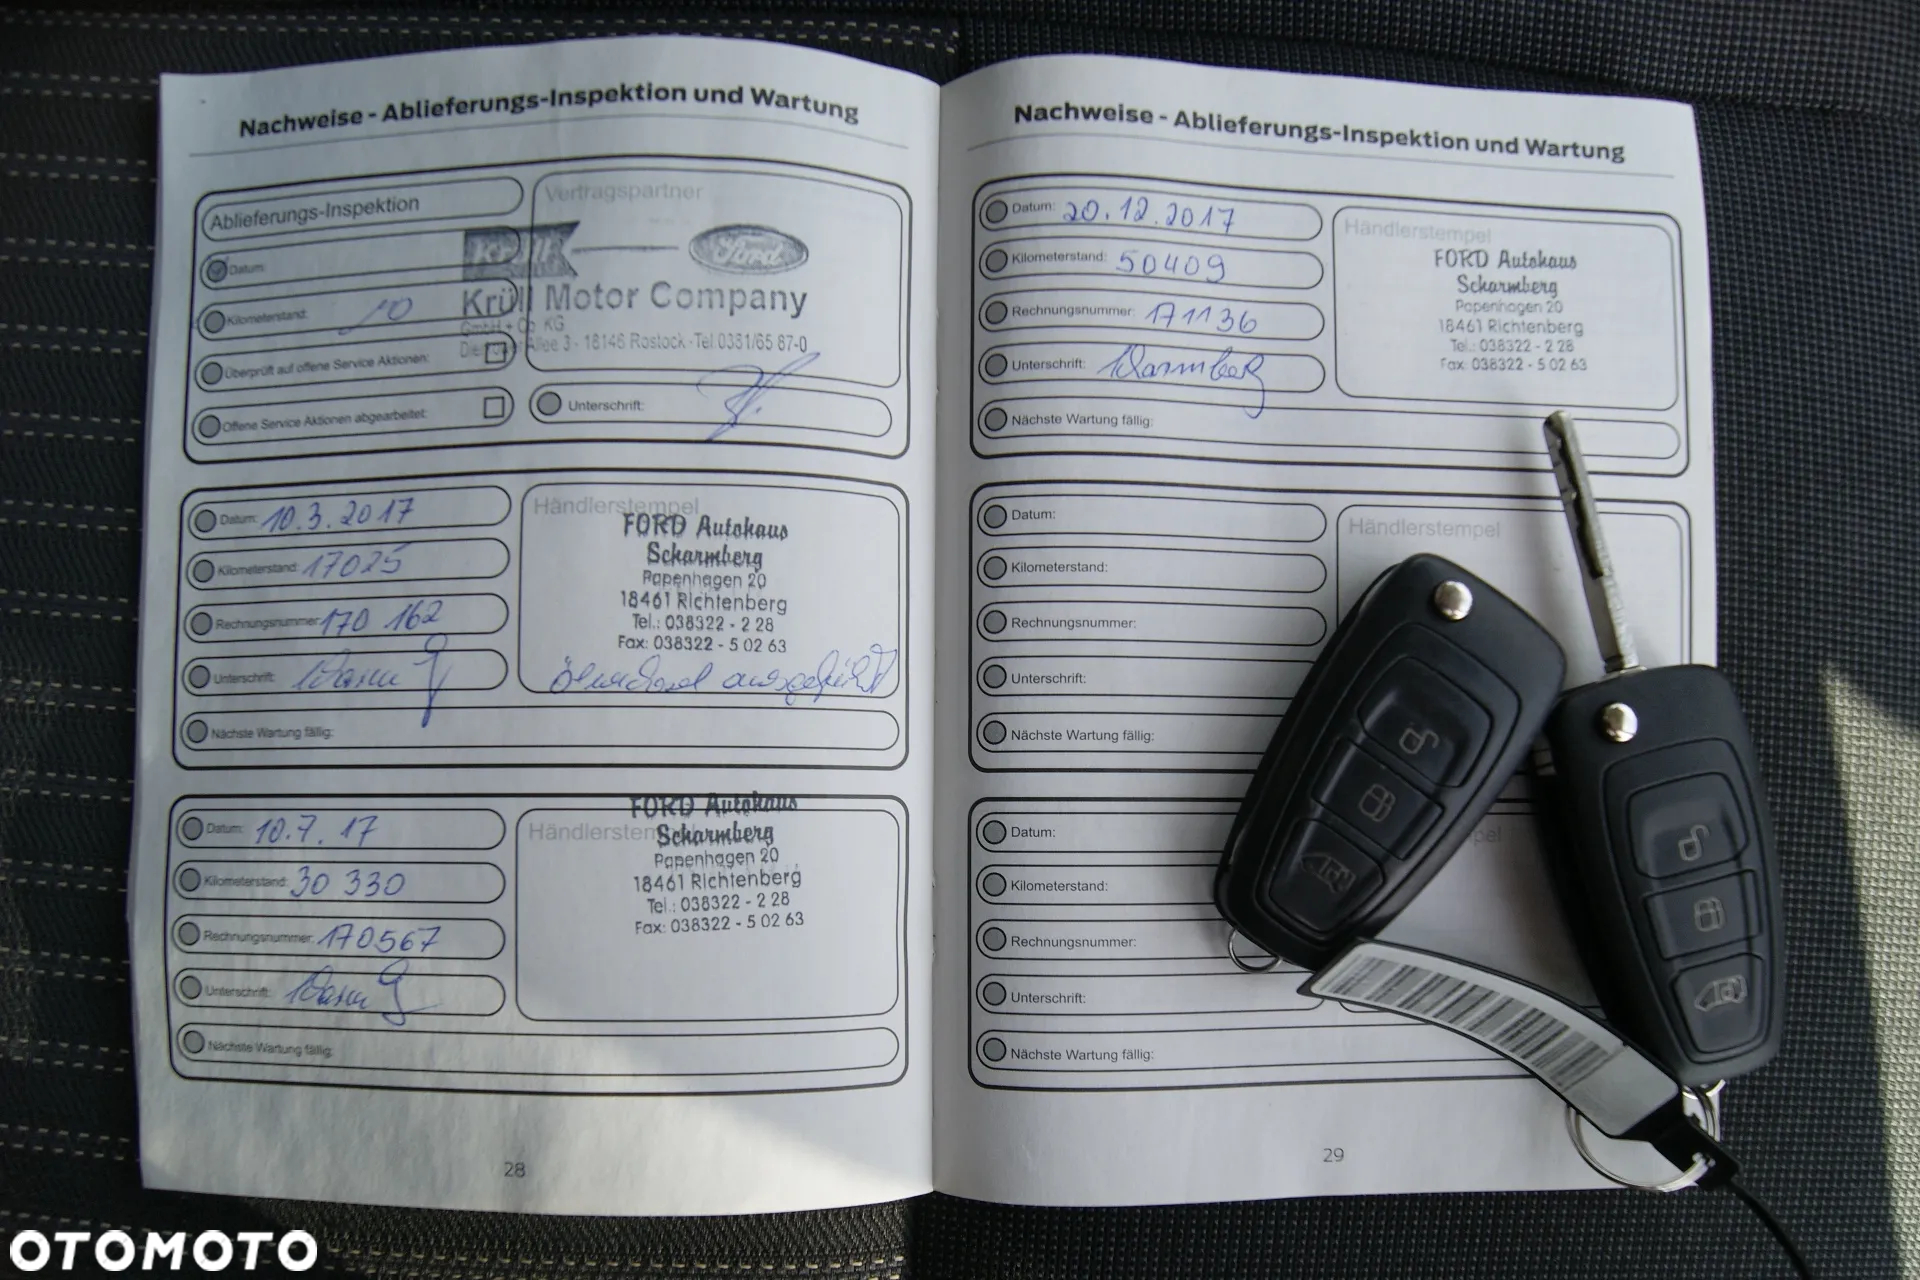 Nachweise - Ablieferungs-Inspektion und Wartung
Ablieferungs-Inspektion
Datum:
Kilometerstand: 10
Überprüft auf offene Service Aktionen:
Offene Service Aktionen abgearbeitet:
Vertragspartner
Krüll
Ford
Krüll Motor Company
GmbH + Co. KG
Allee 3 - 18146 Rostock - Tel. 0381/65 87-0
Unterschrift:
Datum: 10.3.2017
Kilometerstand: 17025
Rechnungsnummer: 170 162
Unterschrift:
Nächste Wartung fällig:
Händlerstempel
FORD Autohaus
Scharmberg
Papenhagen 20
18461 Richtenberg
Tel.: 038322 - 2 28
Fax: 038322 - 5 02 63
Ölwechsel ausgeführt
Datum: 10.7.17
Kilometerstand: 30 330
Rechnungsnummer: 170567
Unterschrift:
Nächste Wartung fällig:
Händlerstempel
FORD Autohaus
Scharmberg
Papenhagen 20
18461 Richtenberg
Tel.: 038322 - 2 28
Fax: 038322 - 5 02 63
28
Nachweise - Ablieferungs-Inspektion und Wartung
Datum: 20.12.2017
Kilometerstand: 50409
Rechnungsnummer: 171136
Unterschrift:
Nächste Wartung fällig:
Händlerstempel
FORD Autohaus
Scharmberg
Papenhagen 20
18461 Richtenberg
Tel.: 038322 - 2 28
Fax: 038322 - 5 02 63
Datum:
Kilometerstand:
Rechnungsnummer:
Unterschrift:
Nächste Wartung fällig:
Händlerstempel
Datum:
Kilometerstand:
Rechnungsnummer:
Unterschrift:
Nächste Wartung fällig:
29
OTOMOTO